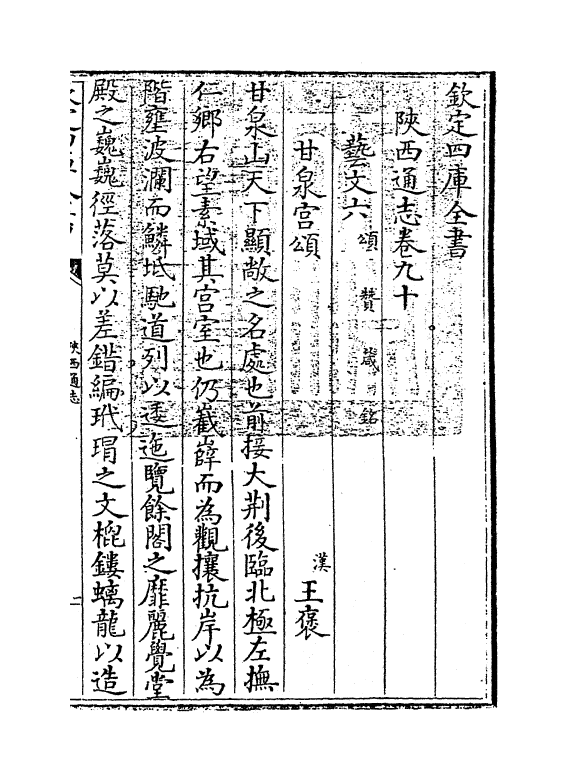 欽定四庫全書
陝西通志卷九十
藝文六 頌 贊 箴 銘
甘泉宫頌 漢 王褒
甘泉山天下顯敞之名處也前接大荆後臨北極左撫
仁鄉右望素域其宫室也仍嶻嶭而為觀攘抗岸以為
階壅波瀾而鱗坻馳道列以逶迤覽餘閣之靡麗覺堂
殿之巍巍徑落莫以差錯編玳瑁之文㮰鏤螭龍以造
陜西通志